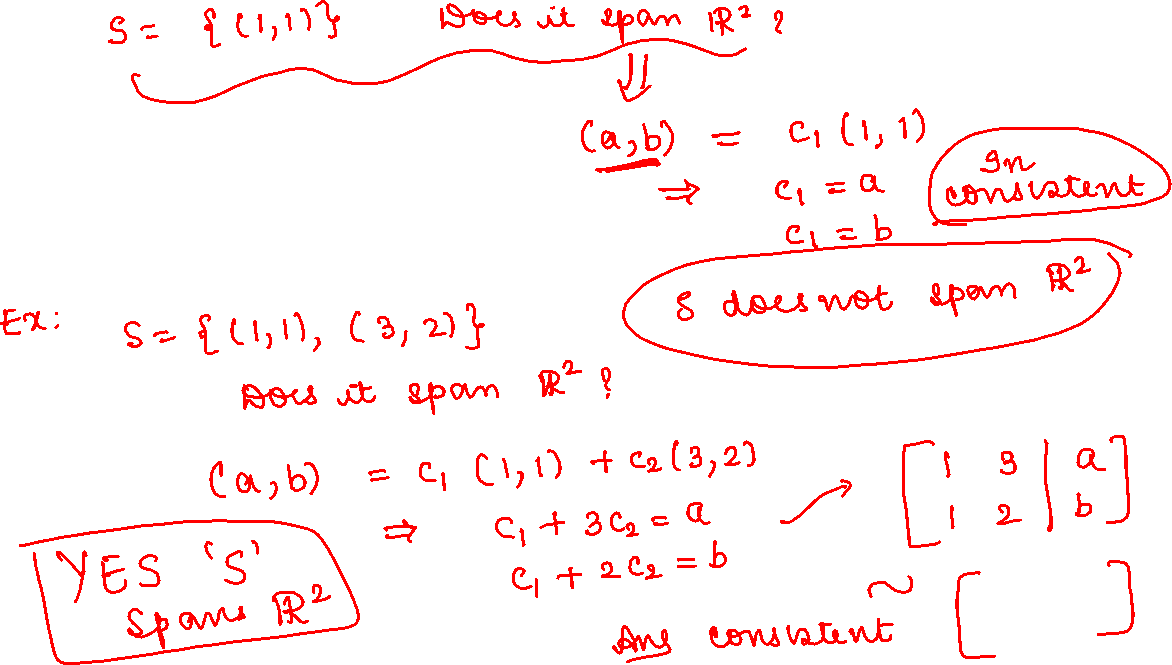 S = {(1,1)} Does it span ℝ² ?
⇓
(a,b) = c₁ (1, 1)
⇒ c₁ = a
c₁ = b
In
consistent
S does not span ℝ²
Ex: S = {(1,1), (3, 2)}
Does it span ℝ² ?
(a,b) = c₁ (1,1) + c₂(3,2)
⇒ c₁ + 3c₂ = a
c₁ + 2c₂ = b
[1 3 | a]
[1 2 | b]
~ [ ]
Ans consistent
YES 'S'
Spans ℝ²